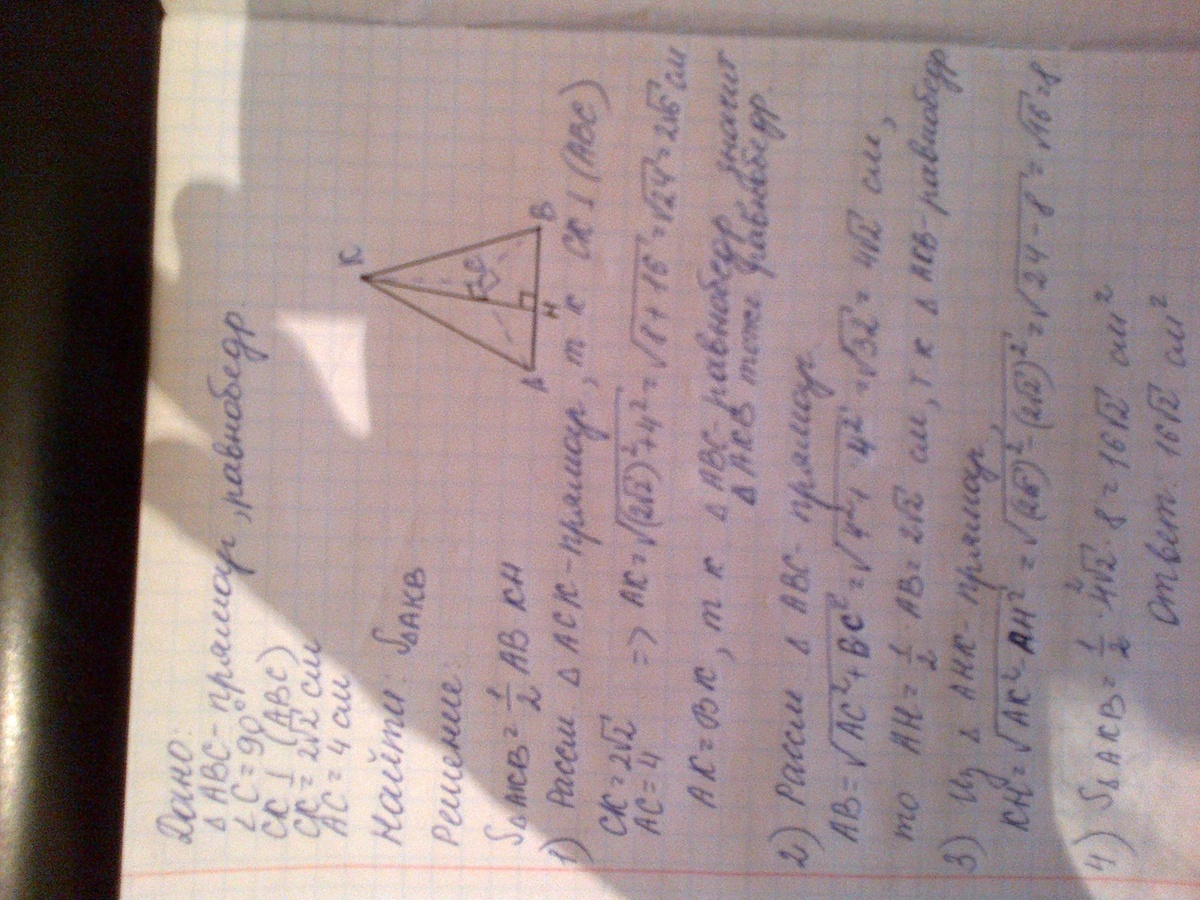 Дано:
Δ ABC - прямоуг, равнобедр
∠C = 90°
CK ⊥ (ABC)
CK = 2√2 см
AC = 4 см
Найти: S∆AKB
Решение:
S∆AKB = 1/2 AB KH
K
A
H
C
B
1) Рассм Δ ACK - прямоуг, т к CK ⊥ (ABC)
CK = 2√2
AC = 4 => AK = √((2√2)²+4²) = √(8+16) = √24 = 2√6 см
AK = BK, т к Δ ABC - равнобедр значит
Δ AKB тоже равнобедр.
2) Рассм Δ ABC - прямоуг
AB = √(AC²+BC²) = √(4²+4²) = √32 = 4√2 см,
то AH = 1/2 · AB = 2√2 см, т к Δ AKB - равнобедр
3) Из Δ AHK - прямоуг,
KH = √(AK²-AH²) = √((2√6)²-(2√2)²) = √(24-8) = √16 = 8
4) S∆AKB = 1/2 · 4√2 · 8 = 16√2 см²
2
Ответ: 16√2 см²